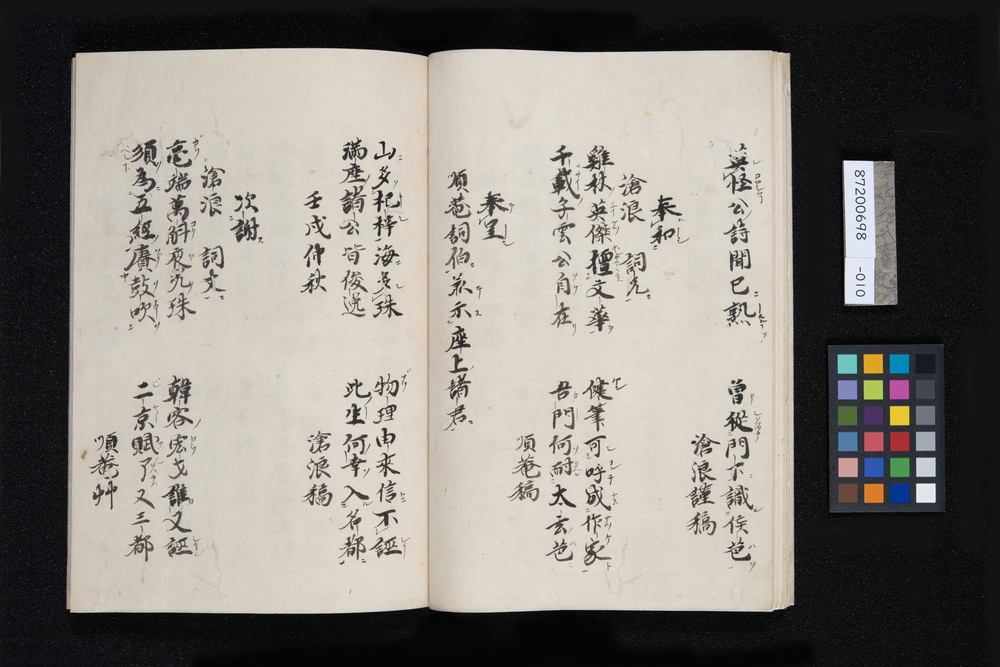 莫怪公詩聞已熟　曾從門下識侯芭
滄浪謹稿
奉和
滄浪　詞兄
雞林英傑擅文華　健筆可呼成作家
千載子雲公自在　吾門何耐太玄芭
順菴稿
奉呈
順菴詞伯兼示座上諸君
山多杞梓海多珠　物理由來信不誣
滿座諸公皆俊逸　此生何幸入名都
壬戌仲秋　滄浪稿
次謝
滄浪　詞丈
毫端萬斛夜光珠　韓客宏才誰又誣
須為五經賡鼓吹　二京賦了又三都
順菴艸
87200698
-010